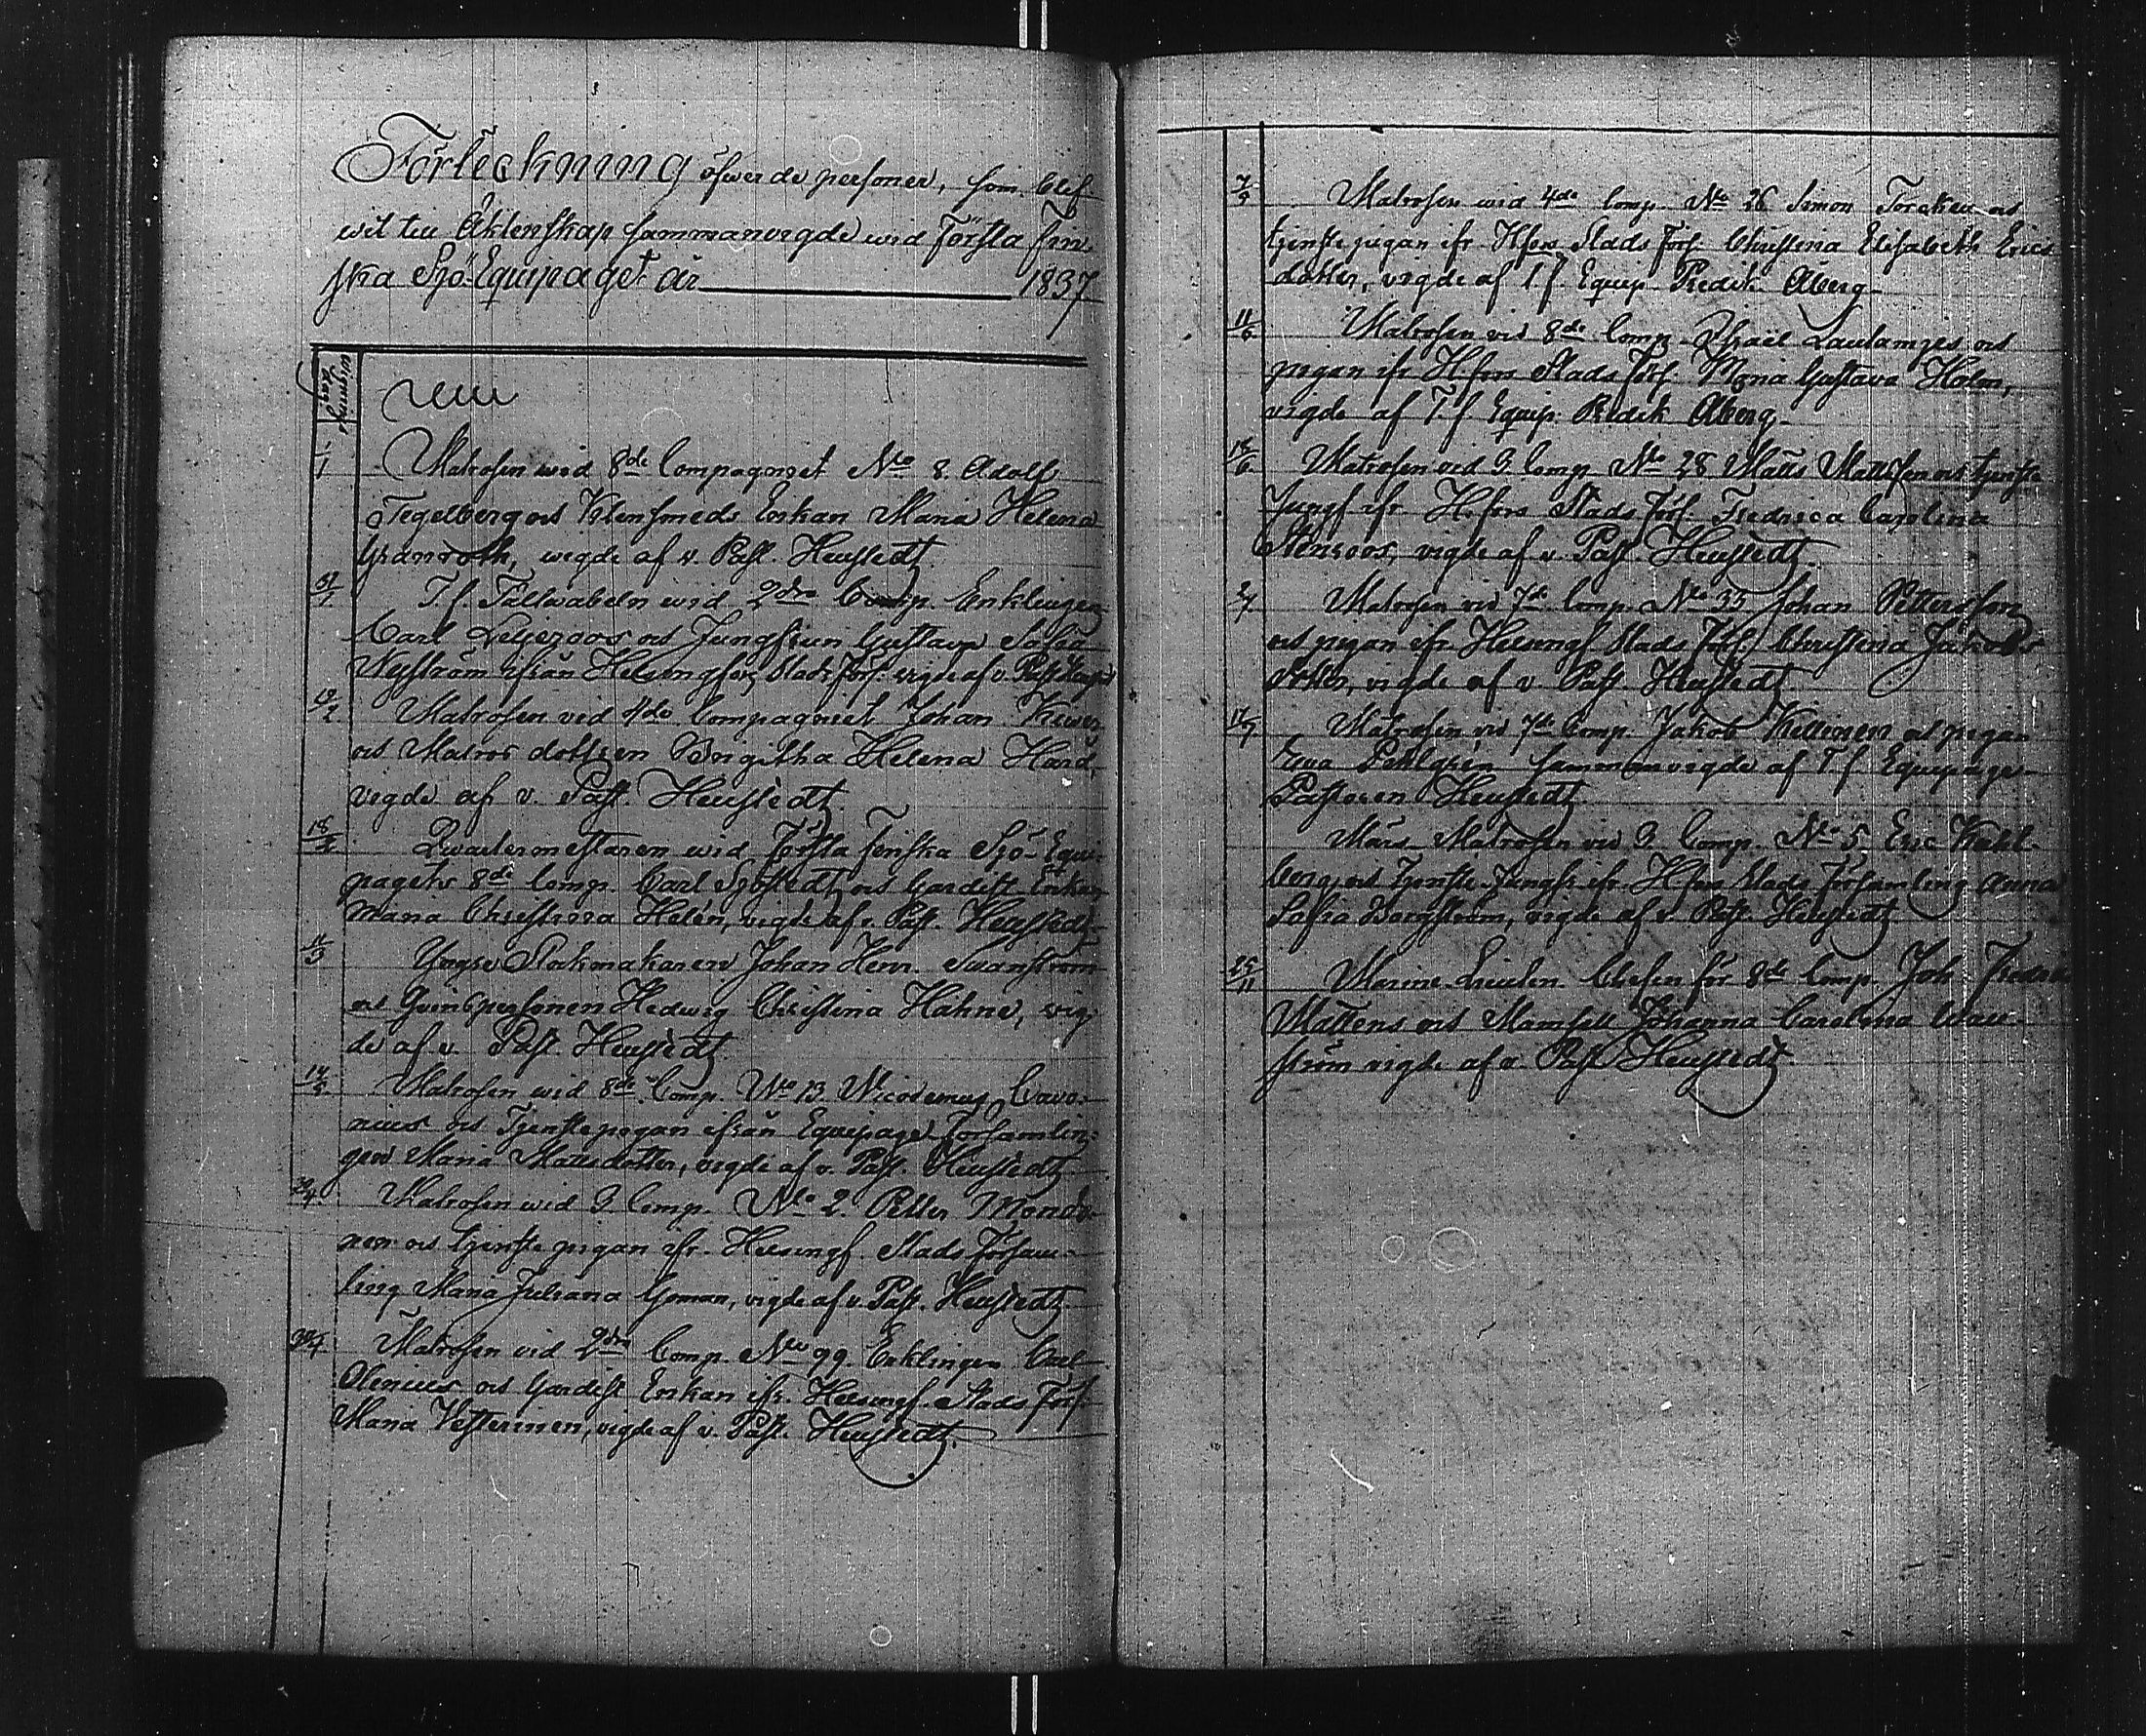 Förteckning öfwer de personer, som blif-
wit till Äktenskap sammanvigde wid Första Fin-
ska Sjö-Equipaget år 1837
Vignings
dag.
1/1 Matrosen wid 8de Compagniet No 8. Adolf
Tegelberg och Klensmeds Enkan Maria Helena
Granroth, wigde af v. Past. Heustedt.
31/1 T. f. wid 2dra Comp. Enklingen
Carl Liljeroos och Jungfrun Gustava Sofia
Nyström ifrån Helsingfors Stads Förs. vigde af v. Past. Heustedt
12/2 Matrosen vid 4de Compagniet Johan
och Matros dottren Brigitha Helena Hård,
vigde af v. Past. Heustedt.
18/2 Qvartermestaren wid Första Finska Sjö-Equi-
pagets 8de Comp. Carl Sjöstedt och Gardist Enkan
Maria Christina Helén, vigde af v. Past. Heustedt.
11/3 Yngre Johan Henr. Swanström
och Qvinspersonen Hedwig Christina Hahne, vig-
de af v. Past. Heustedt.
Matrosen wid 8de Comp. No 13. Nicodemus
och Tjenstepigan ifrån Equipage Församlin-
gen Maria Mattsdotter, vigde af v. Past. Heustedt
30/4 Matrosen wid 3 Comp. No 2. Petter Mondo-
nen och tjenste pigan ifr. Helsingf. Stads Försam-
ling Maria Juliana Goman, vigde af v. Past. Heustedt.
30/4 Matrosen vid 2dra Comp. No 99. Enklingen Carl
Olenius och Gardist Enkan ifr. Helsingf. Stads Förs.
Maria Vesterinen, vigde af v. Past. Heustedt.
Matrosen wid 4de Comp. No 26 Simon Torckell och
tjenste pigan ifr. Hfors Stads Förs. Christina Elisabeth Erics
dotter, vigde af t. f. Equip. Predik. Åberg.
11/6 Matrosen vid 8de Comp. och
pigan ifr Hfors Stads Förs. Maria Gustava Holm,
vigde af T. f. Equip. Predik Åberg.
18/6 Matrosen vid 3 Comp. No 28 Matts Mattsson och tjenste
Jungf. ifr. H.fors Stads Förs. Fredrica Carolina
Stenroos, vigde af v. Past. Heustedt.
2/7 Matrosen vid 7de Comp. No 35 Johan Pettersson
och pigan ifr. Helsingf. Stads Förs. Christina Jakobs
dotter, vigde af v. Past. Heustedt
Matrosen vid 7de Comp. Jakob och pigan
Eva sammanvigde af T. f. Equipage-
Pastoren Heustedt.
Mars-Matrosen vid 3 Comp. No 5. Eric Wahl-
berg och Tjenste-Jungfr. ifr. H.fors Stads Församling Anna
Sofia Bergström, vigde af v. Past. Heustedt
25/11 Marine-Lieuten. Chefen för 8de Comp. Joh. Fredrik
Mattens och Mamsell Johanna Carolina
ström vigde af v. Past. Heustedt.